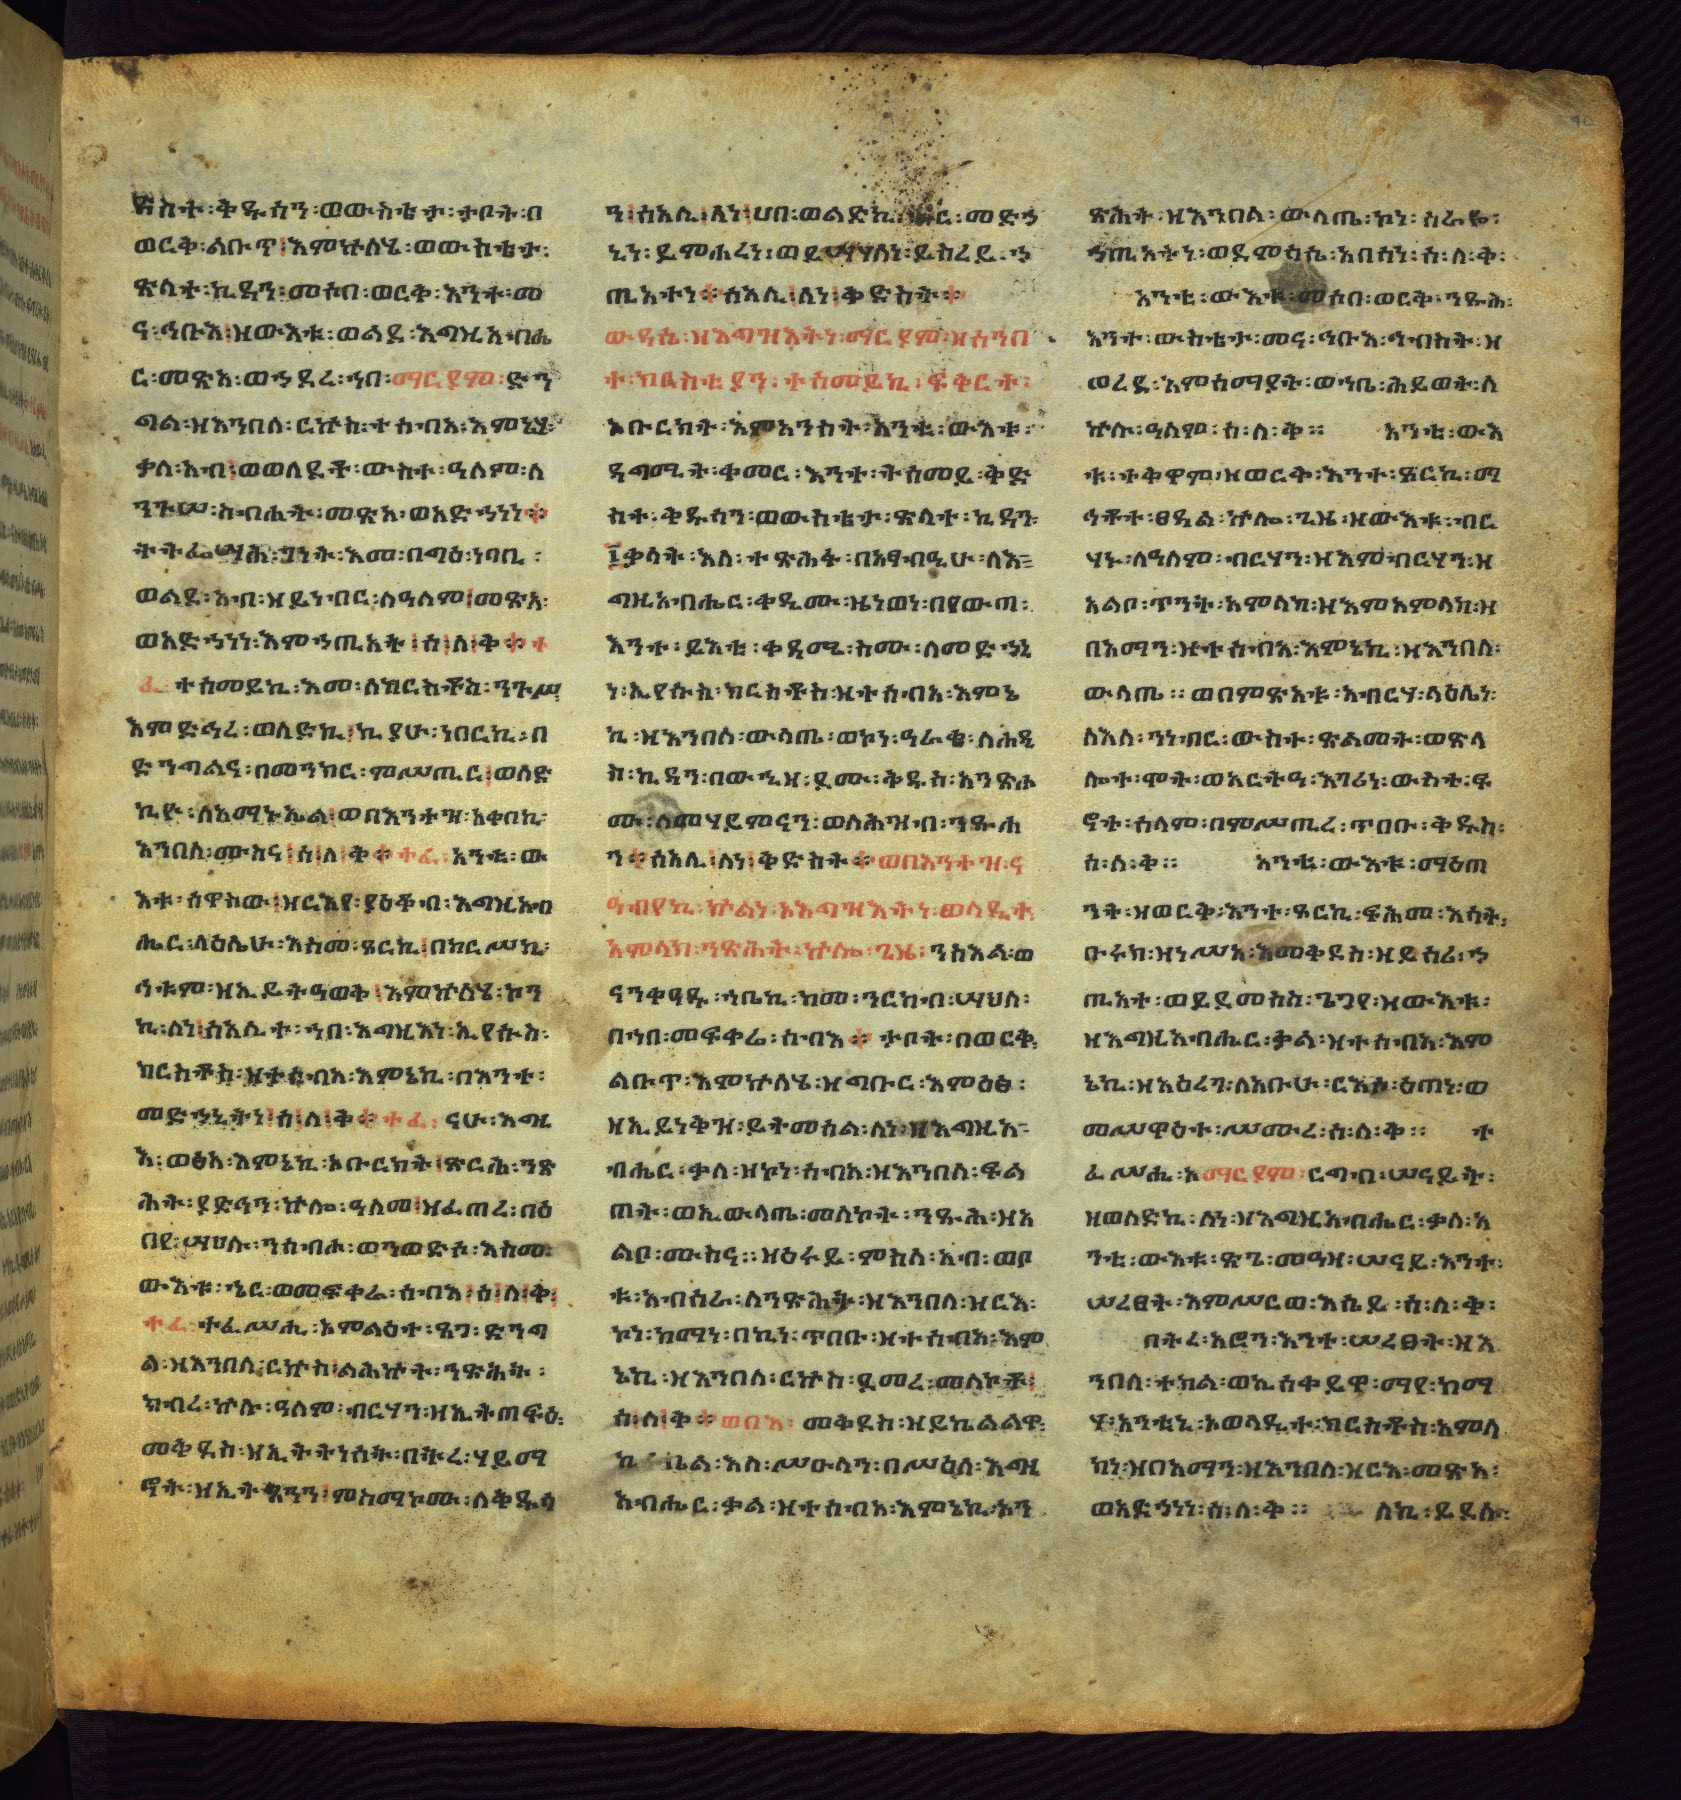 ድስት፡ቅዱሳን፡ወውስቴታ፡ታቦት፡በ
ወርቅ፡ልቡጥ፡እምኵለሄ፡ወውስቴታ፡
ጽላተ፡ኪዳን፡መሶበ፡ወርቅ፡እንተ፡መ
ና፡ኅቡእ፡ዘውእቱ፡ወልደ፡እግዚአብሔ
ር፡መጽአ፡ወኀደረ፡ኀበ፡ማርያም፡ድን
ግል፡ዘእንበለ፡ርኵስ፡ተሰብአ፡እምኔሃ፡
ቃለ፡አብ፡ወወለደቶ፡ውስተ፡ዓለም፡ለ
ንጉሠ፡ስብሐት፡መጽአ፡ወአድኀነነ።
ትትፌሣሕ፡ገነት፡እመ፡በግዕ፡ነባቢ፡
ወልደ፡አብ፡ዘይነብር፡ለዓለም፡መጽአ፡
ወአድኀነነ፡እምኀጢአት፡ሰ፡ለ፡ቅ።ተ
ፈ፡ተሰመይኪ፡እመ፡ለክርስቶስ፡ንጉሥ
እምድኅረ፡ወለድኪ፡ኪያሁ፡ነበርኪ፡በ
ድንግልና፡በመንክር፡ምሥጢር፡ወለድ
ኪዮ፡ለአማኑኤል፡ወበእንተዝ፡አቀበኪ፡
እንበለ፡ሙስና፡ሰ፡ለ፡ቅ።ተፈ፡አንቲ፡ው
እቱ፡ሰዋስው፡ዘርእየ፡ያዕቆብ፡እግዚአብ
ሔር፡ላዕሌሁ፡እስመ፡ጾርኪ፡በከርሥኪ፡
ኅቱም፡ዘኢይትዓወቅ፡እምኵለሄ፡ኮን
ኪ፡ለነ፡ሰአሊተ፡ኀበ፡እግዚእነ፡ኢየሱስ፡
ክርስቶስ፡ዘተሰብአ፡እምኔኪ፡በእንተ፡
መድኀኒትነ፡ሰ፡ለ፡ቅ።ተፈ፡ናሁ፡እግዚ
እ፡ወፅአ፡እምኔኪ፡ኦቡርክት፡ጽርሕ፡ንጽ
ሕት፡ያድኅን፡ኵሎ፡ዓለመ፡ዘፈጠረ፡በዕ
በየ፡ሣህሉ፡ንሰብሖ፡ወንወድሶ፡እስመ፡
ውእቱ፡ኄር፡ወመፍቀሬ፡ሰብእ፡ሰ፡ለ፡ቅ፡
ተፈ፡ተፈሥሒ፡እምልዕተ፡ጸጋ፡ድንግ
ል፡ዘእንበለ፡ርኵስ፡ልሕኵት፡ንጽሕት፡
ክብረ፡ኵሉ፡ዓለም፡ብርሃን፡ዘኢትጠፍዕ፡
መቅደስ፡ዘኢትትነሰት፡በትረ፡ሃይማ
ኖት፡ዘኢትጸንን፡ምስማኮሙ፡ለቅዱሳ
ን፡ሰአሊ፡ለነ፡ሀበ፡ወልድኪ፡ኄር፡መድኀ
ኒነ፡ይምሐረነ፡ወይሣሃለነ፡ይስረይ፡ኀ
ጢአተነ።ሰአሊ፡ለነ፡ቅድስት።
ውዳሴ፡ዘእግዝእትነ፡ማርያም፡ዘሰንበ
ተ፡ክርስቲያን፡ተሰመይኪ፡ፍቅርተ፡
ኦቡርክት፡እምአንስት፡አንቲ፡ውእቱ፡
ዳግሚት፡ቀመር፡እንተ፡ትሰመይ፡ቅድ
ስተ፡ቅዱሳን፡ወውስቴታ፡ጽላተ፡ኪዳን፡
፲ቃላት፡እለ፡ተጽሕፋ፡በአፃብዒሁ፡ለእ
ግዚአብሔር፡ቀዲሙ፡ዜነወነ፡በየውጣ፡
እንተ፡ይእቲ፡ቀዳሜ፡ስሙ፡ለመድኃኒ
ነ፡ኢየሱስ፡ክርስቶስ፡ዘተሰብአ፡እምኔ
ኪ፡ዘእንበለ፡ውላጤ፡ወኮነ፡ዓራቄ፡ለሐዲ
ስ፡ኪዳን፡በውኂዘ፡ደሙ፡ቅዱስ፡አንጽሖ
ሙ፡ለመሃይምናን፡ወለሕዝብ፡ንጹሐ
ን።ሰአሊ፡ለነ፡ቅድስት።ወበእንተዝ፡ና
ዓብየኪ፡ኵልነ፡ኦእግዝእትነ፡ወላዲተ፡
አምላክ፡ንጽሕት፡ኵሎ፡ጊዜ፡ንስእል፡ወ
ናንቀዓዱ፡ኀቤኪ፡ከመ፡ንርከብ፡ሣህለ፡
በኀበ፡መፍቀሬ፡ሰብእ።ታቦት፡በወርቅ፡
ልቡጥ፡እምኵለሄ፡ዘግቡር፡እምዕፅ፡
ዘኢይነቅዝ፡ይትመሰል፡ለነ፡ዘእግዚአ
ብሔር፡ቃለ፡ዘኮነ፡ሰብአ፡ዘእንበለ፡ፍል
ጠት፡ወኢውላጤ፡መለኮት፡ንጹሕ፡ዘአ
ልቦ፡ሙስና።ዘዕሩይ፡ምስለ፡አብ፡ወቦ
ቱ፡አብሰራ፡ለንጽሕት፡ዘእንበለ፡ዘርእ፡
ኮነ፡ከማነ፡በኪነ፡ጥበቡ፡ዘተሰብአ፡እም
ኔኪ፡ዘእንበለ፡ርኵስ፡ደመረ፡መለኮቶ፡
ሰ፡ለ፡ቅ።ወበእ፡መቅደስ፡ዘይኬልልዋ፡
ኪሩቤል፡እለ፡ሥዑላን፡በሥዕለ፡እግዚ
አብሔር፡ቃል፡ዘተሰብአ፡እምኔኪ፡ኦን
ጽሕት፡ዘእንበለ፡ውላጤ፡ኮነ፡ሰራዬ፡
ኀጢአትነ፡ወደምሳሴ፡አበሳነ፡ሰ፡ለ፡ቅ፡
አንቲ፡ውእቱ፡መሶበ፡ወርቅ፡ንጹሕ፡
እንተ፡ውስቴታ፡መና፡ኅቡእ፡ኅብስት፡ዘ
ወረደ፡እምሰማያት፡ወኀቤ፡ሕይወት፡ለ
ኵሉ፡ዓለም፡ሰ፡ለ፡ቅ። አንቲ፡ውእ
ቱ፡ተቅዋም፡ዘወርቅ፡እንተ፡ጾርኪ፡ማ
ኅቶተ፡ፀዳል፡ኵሎ፡ጊዜ፡ዘውእቱ፡ብር
ሃኑ፡ለዓለም፡ብርሃን፡ዘእም፡ብርሃን፡ዘ
አልቦ፡ጥንት፡አምላክ፡ዘእምአምላክ፡ዘ
በአማን፡ዘተሰብአ፡እምኔኪ፡ዘእንበለ፡
ውላጤ።ወበምጽአቱ፡አብርሃ፡ላዕሌነ፡
ለእለ፡ንነብር፡ውስተ፡ጽልመት፡ወጽላ
ሎተ፡ሞት፡ወአርትዓ፡እገሪነ፡ውስተ፡ፍ
ኖተ፡ሰላም፡በምሥጢረ፡ጥበቡ፡ቅዱስ፡
ሰ፡ለ፡ቅ። አንቲ፡ውእቱ፡ማዕጠ
ንት፡ዘወርቅ፡እንተ፡ጾርኪ፡ፍሕመ፡እሳት፡
ቡሩክ፡ዘነሥአ፡እመቅደስ፡ዘይሰሪ፡ኀ
ጢአተ፡ወይደመስስ፡ጌጋየ፡ዘውእቱ፡
ዘእግዚአብሔር፡ቃል፡ዘተሰብአ፡እም
ኔኪ፡ዘአዕረገ፡ለአቡሁ፡ርእሶ፡ዕጣነ፡ወ
መሥዋዕተ፡ሥሙረ፡ሰ፡ለ፡ቅ። ተ
ፈሥሒ፡ኦማርያም፡ርግብ፡ሠናይት፡
ዘወለድኪ፡ለነ፡ዘእግዚአብሔር፡ቃለ፡አ
ንቲ፡ውእቱ፡ጽጌ፡መዓዛ፡ሠናይ፡እንተ፡
ሠረፀት፡እምሥርወ፡እሴይ፡ሰ፡ለ፡ቅ፡
በትረ፡አሮን፡እንተ፡ሠረፀት፡ዘእ
ንበለ፡ተክል፡ወኢሰቀይዋ፡ማየ፡ከማ
ሃ፡አንቲኒ፡ኦወላዲተ፡ክርስቶስ፡አምላ
ክነ፡ዘበአማን፡ዘእንበለ፡ዘርእ፡መጽአ፡
ወአድኀነነ፡ሰ፡ለ፡ቅ። ለኪ፡ይደሉ፡